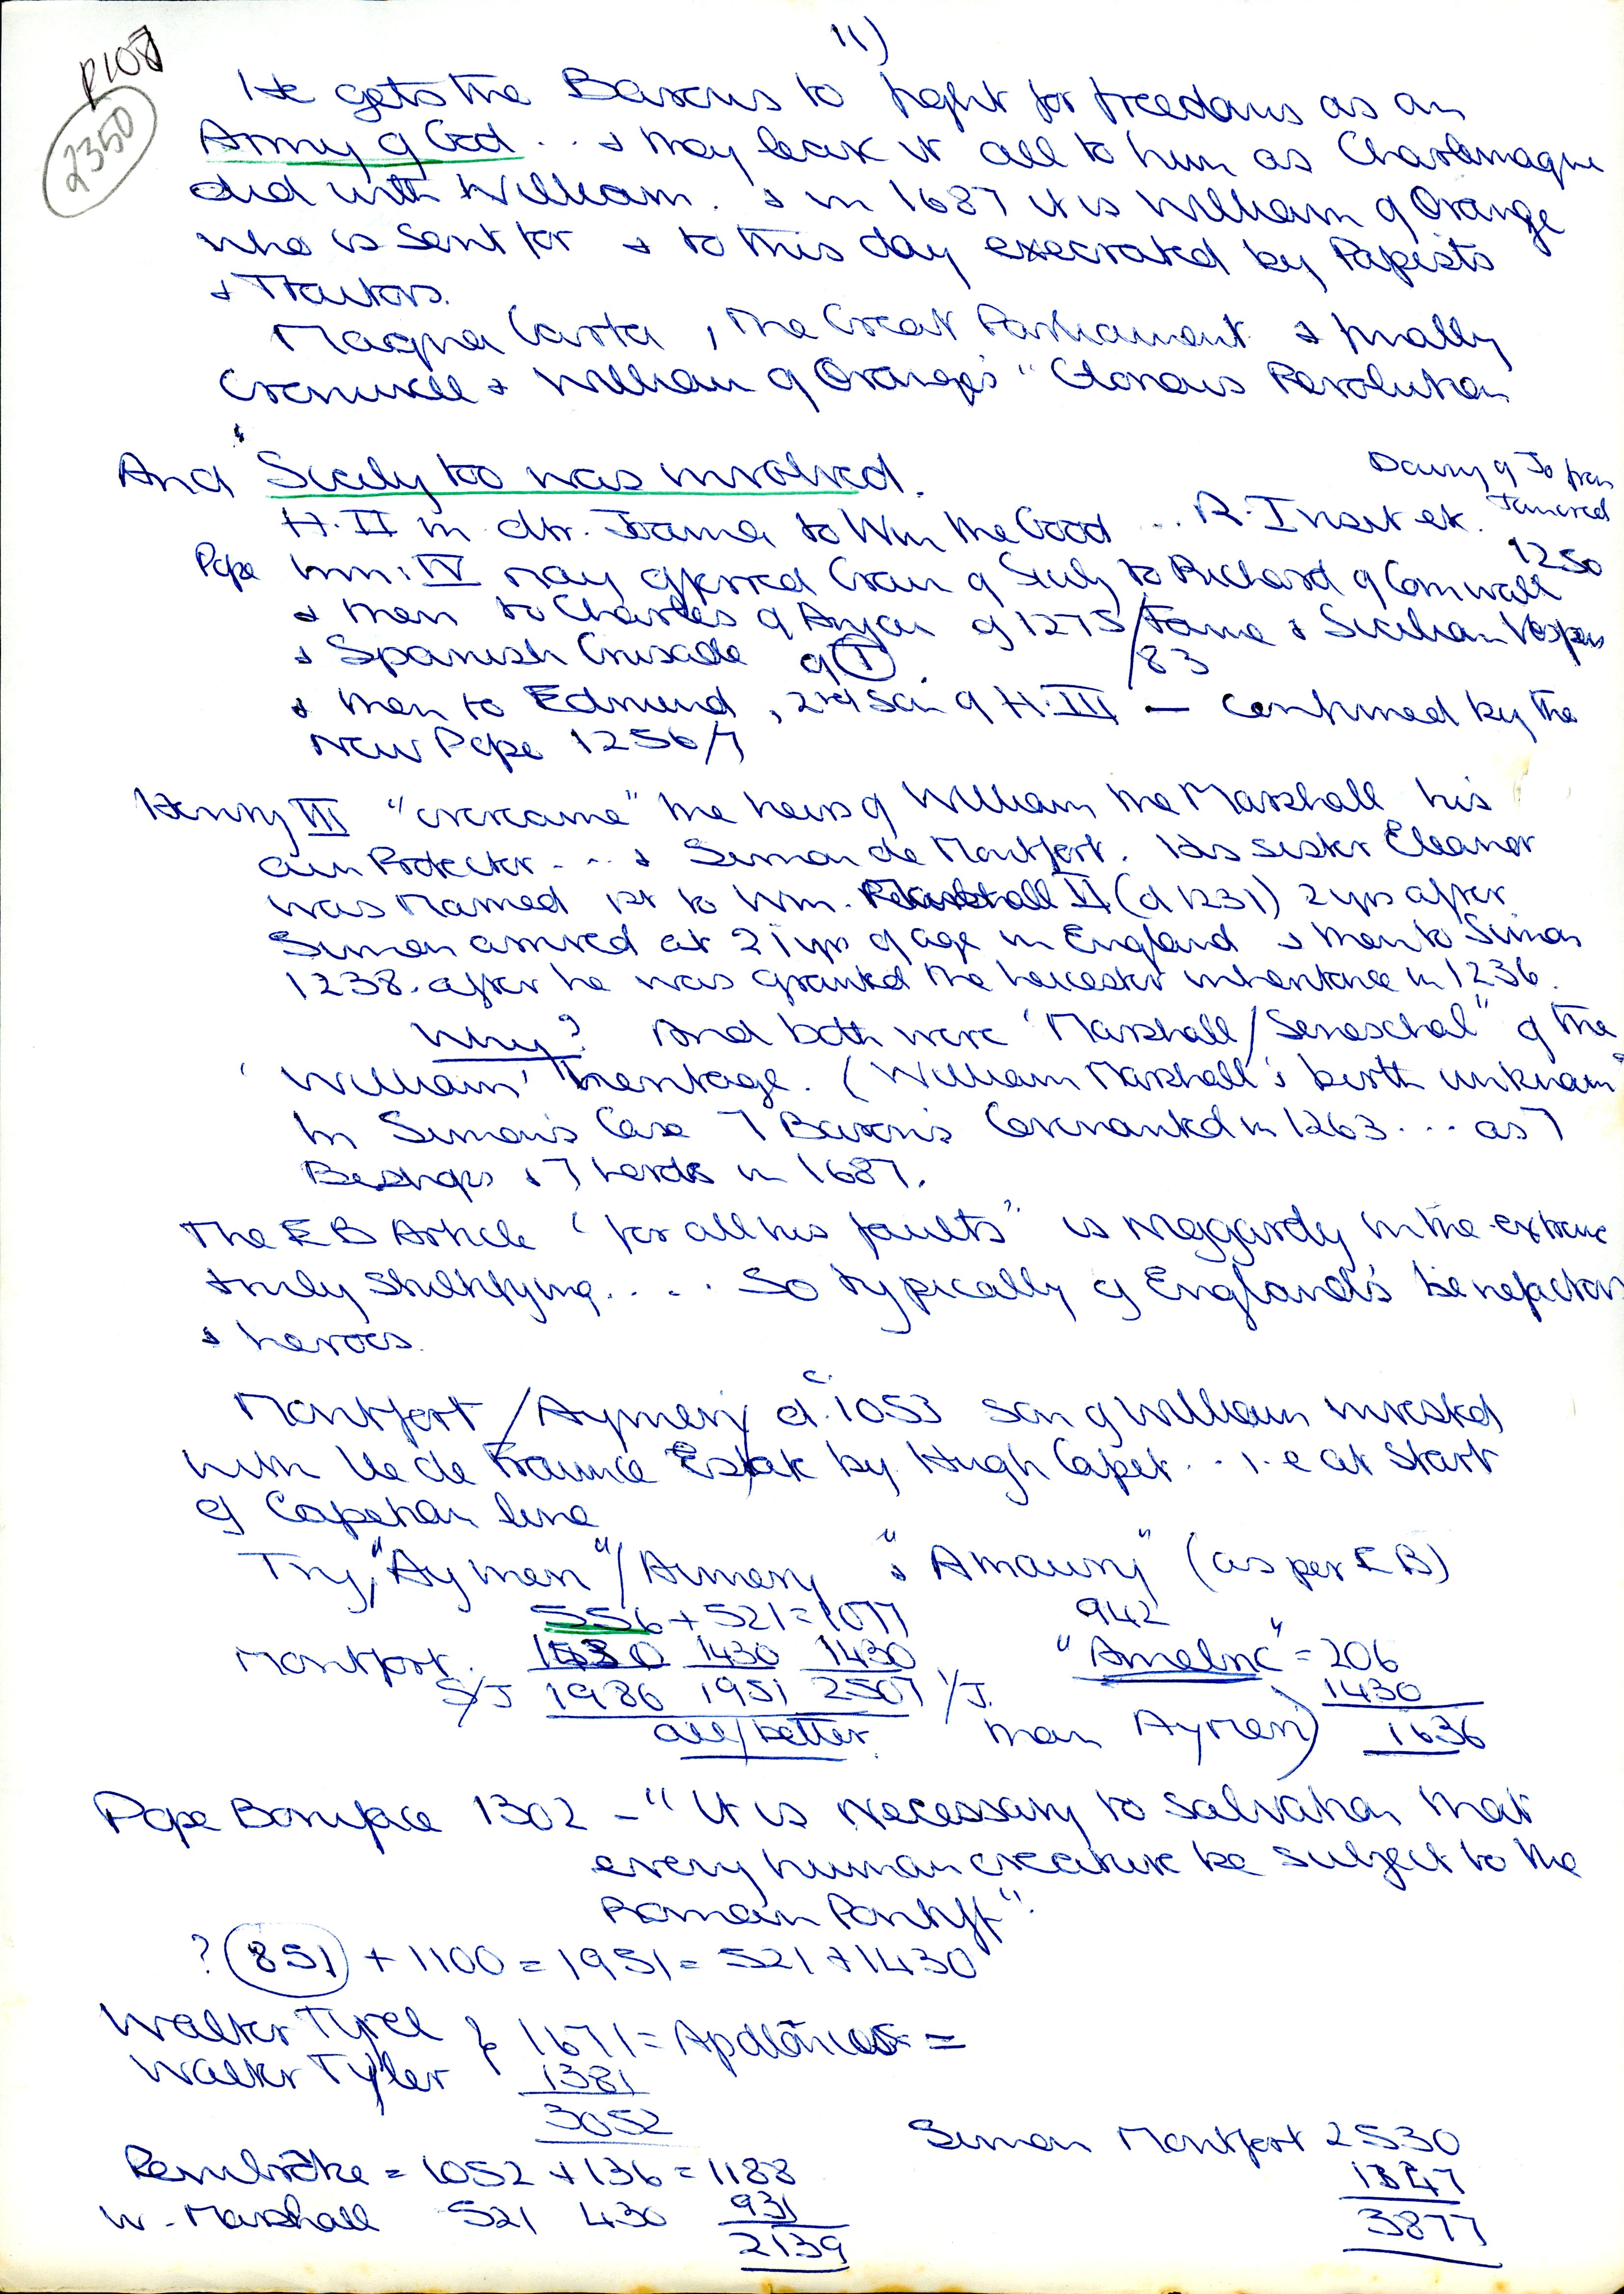 11)
P108
2350
He gets the Barons to fight for freedoms as an
Army of God . . & they leave it all to him as Charlemagne
did with William . & in 1687 it is William of Orange
who is sent for & to this day execrated by Papists
& Traitors.
Magna Carta , the Great Parliament & finally
Cromwell & William of Orange's "Glorious Revolution
"
And Sicily too was involved.
Dowry of Jo from
Tancred
H. II m. dtr. Joanna to Wm the Good ... R. I
1250
Pope Inn: IV may offered Crown of Sicily to Richard of Cornwall
& then to Charles of Anjou of 1275/ fame & Sicilian Vespers
/83
& Spanish Crusade of (I).
& then to Edmund , 2nd son of H. III — confirmed by the
New Pope 1256/7
Henry III "overcame" the heirs of William the Marshall his
own Protector - . . & Simon de Montfort. His sister Eleanor
was married 1st to Wm. Marshall II (d 1231) 2 yrs after
Simon arrived at 21 yrs of age in England & then to Simon
1238. after he was granted the Leicester inheritance in 1236.
Why? And both were 'Marshall/Seneschal" of the
'William' Heritage. (William Marshall's birth unknown"
In Simon's Case 7 Barons Covenanted in 1263 ... as 7
Bishops & 7 Lords in 1687.
The EB Article 'for all his faults" is niggardly in the extreme
truly stultifying. . . . So typically of England's benefactors
& heroes.
Montfort /Aymery d. c. 1053 son of William invested
with Ile de France Estate by Hugh Capet . . i.e at Start
of Capetian line
Try, "Aymery"/Aimery "& Amaury" (as per EB)
556 + 521 = 1077 942
Montfort. 1430 1430 1430 "Amelric" = 206
S/J 1986 1951 2507 1/J. 1430
all/better. than Aymery) 1636
Pope Boniface 1302 - "It is necessary to salvation that
every human creature be subject to the
Roman Pontiff".
? (851) + 1100 = 1951 = 521 + 1430
Walter Tyrel } 1671 = =
Walter Tyler 1381
3052
Simon Montfort 2530
1347
3877
Pembroke = 1052 + 136 = 1188
W. Marshall 521 430 931
2139